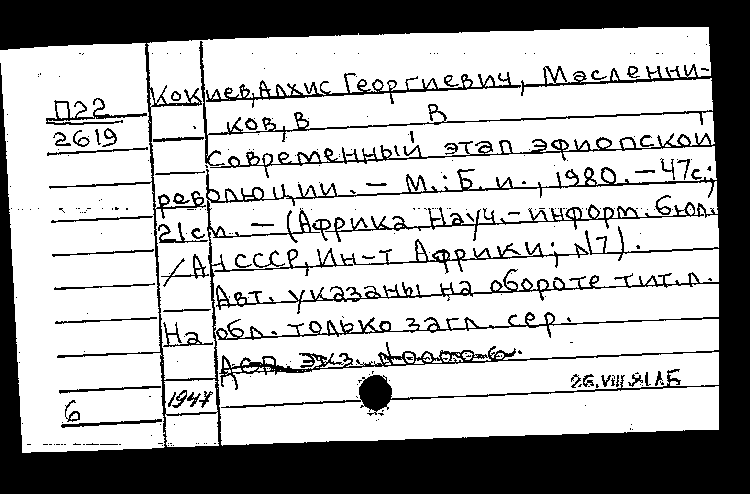 П22
2619
Кокиев, Алхис Георгиевич, Масленни-
ков, В В
Современный этап эфиопской
революции. — М.: Б. и., 1980. — 47с.;
21см. — (Африка. Науч.-информ. бюл.
/АН СССР, Ин-т Африки; №7).
Авт. указаны на обороте тит. л.
На обл. только загл. сер.
Деп. экз.
6
1947
26.VIII.81 АБ